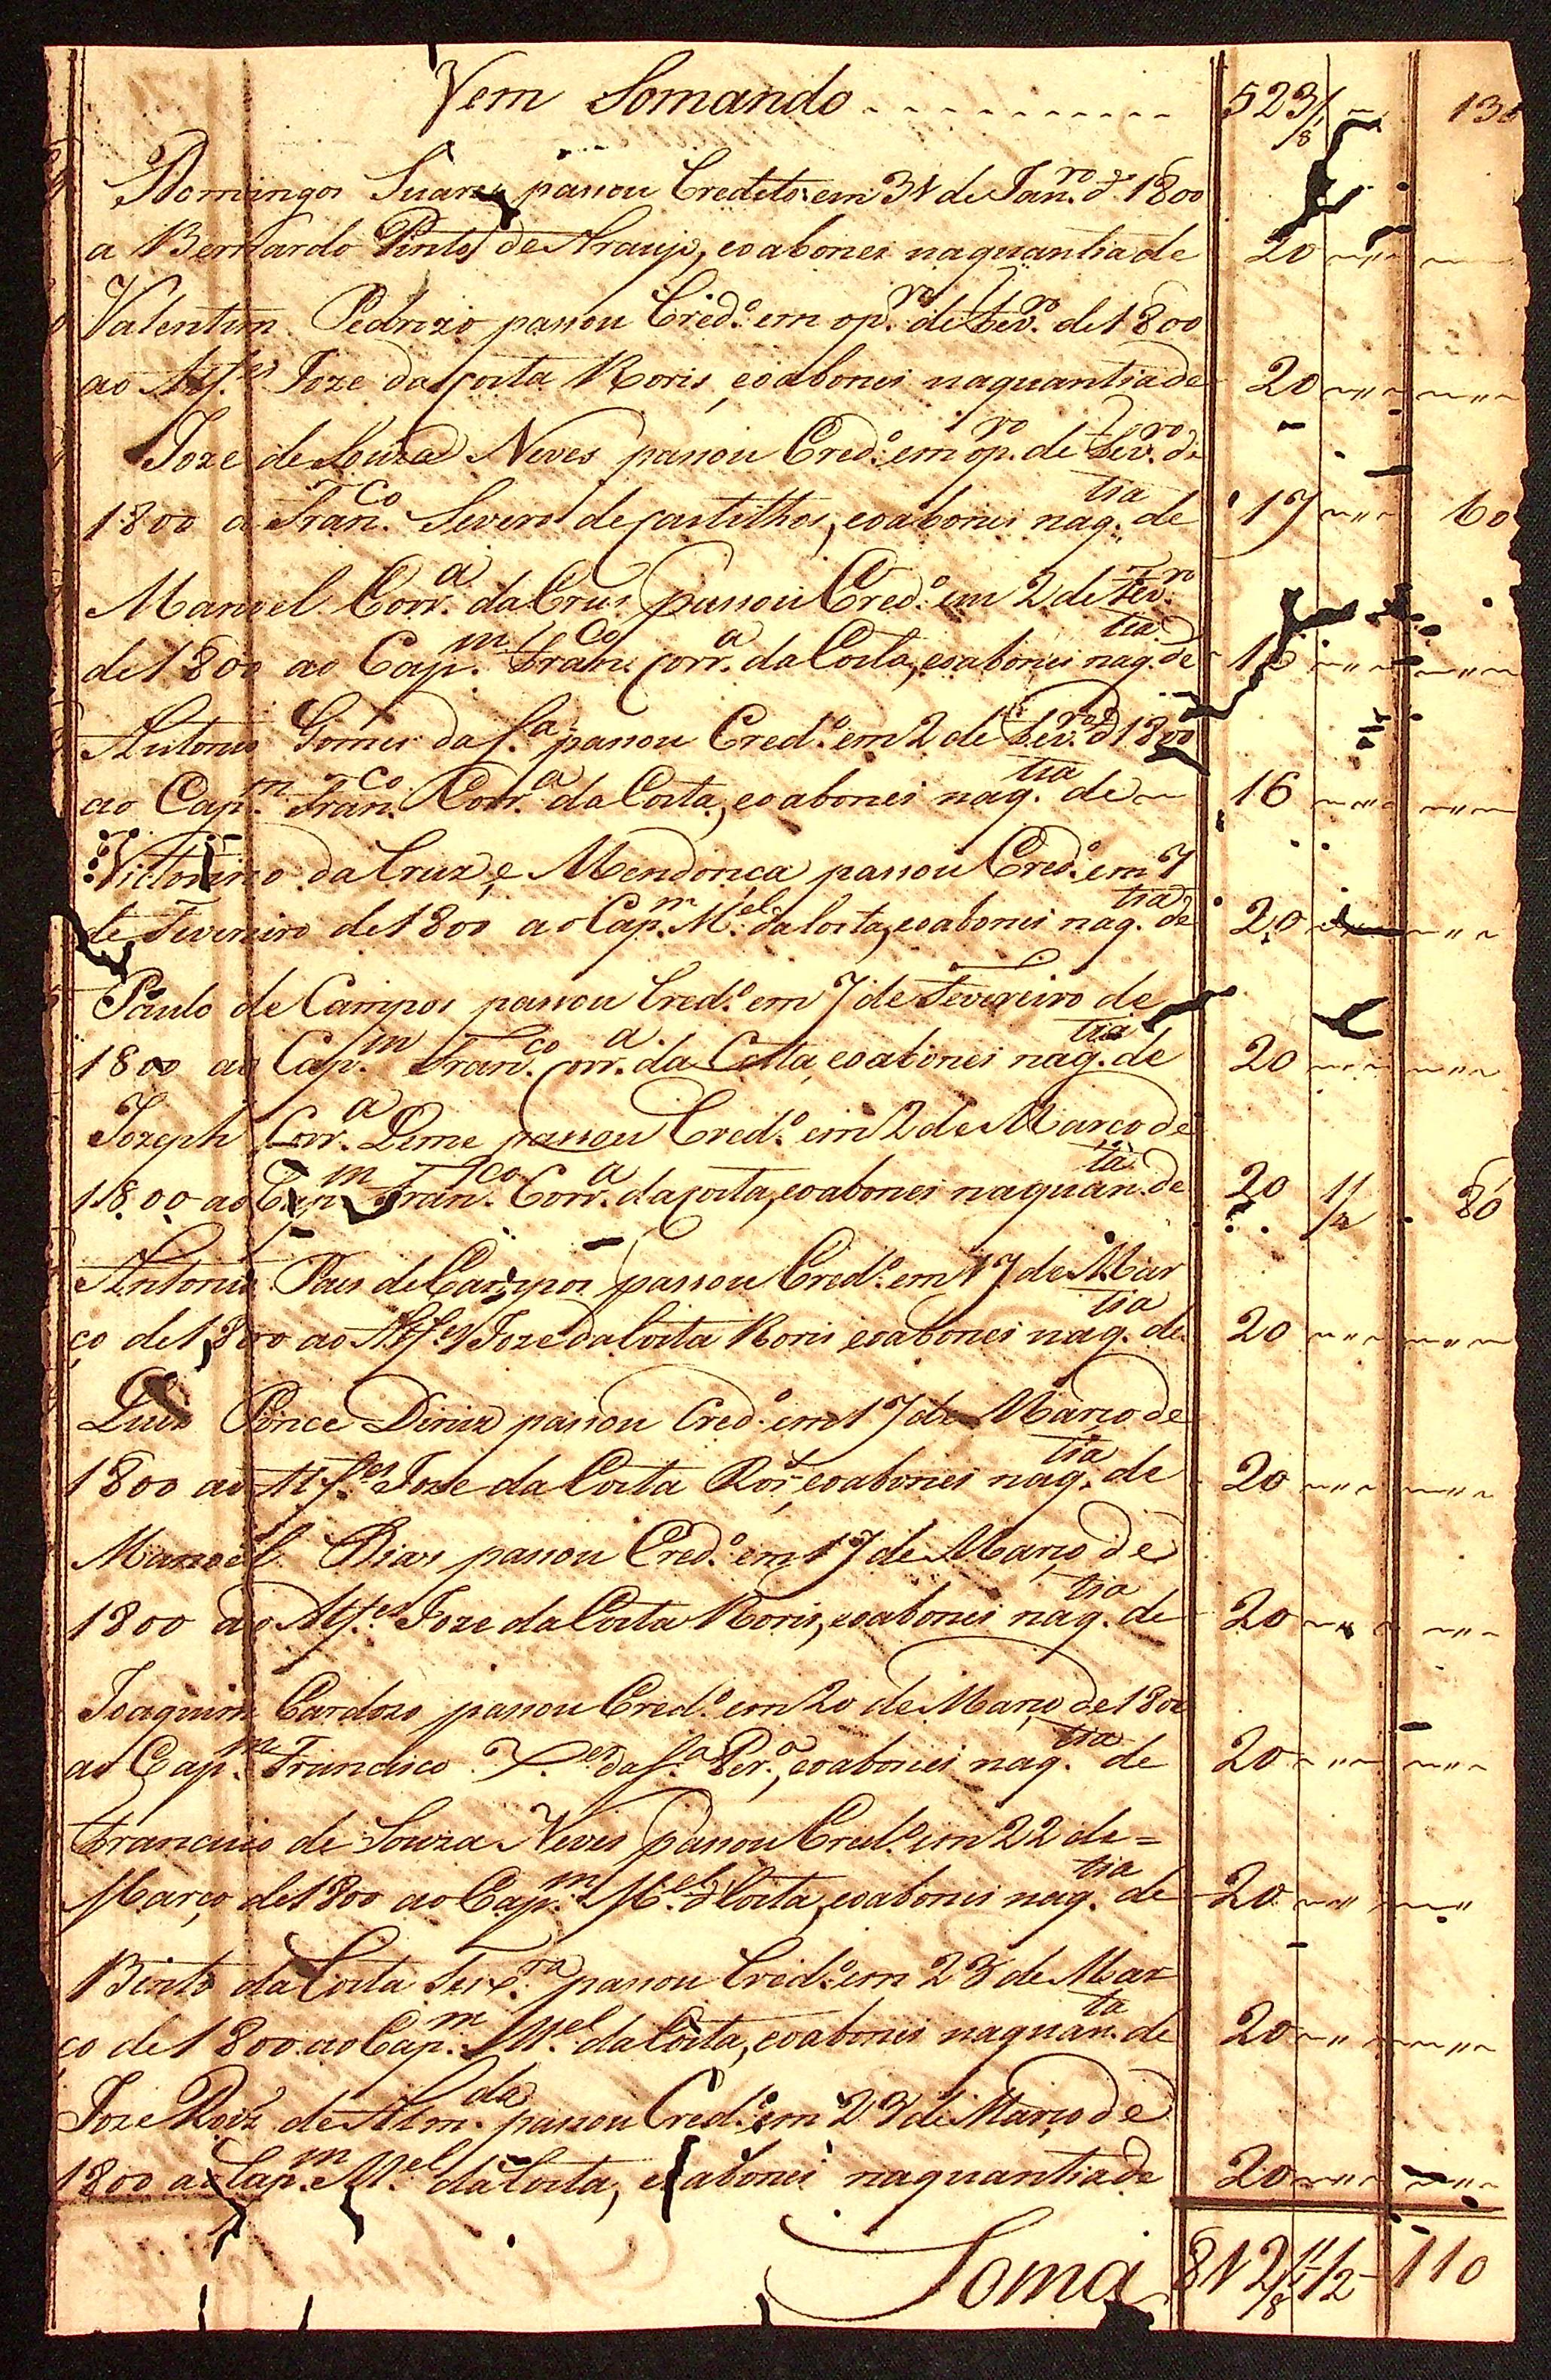 Vem Somando 523/8 130
Domingos Suares passou Credito em 31 de Jan.ro d. 1800
a Bernardo Pinto de Araujo, eoabonei naquantiade 20
Valentim Pedrozo passou Cred.o em op.ro de Fev.ro de 1800
ao Alf.es Joze da Costa Roris, eoabonei naquantiade 20
Joze de Souza Neves passou Cred.o em op.ro de Fev.ro de
1800 a Fran.co Severo de Castilhos, eoabonei naq.tia de 17 60
Manoel Corr.a da Crus passou Cred.o em 2 de Fev.ro
de 1800 ao Cap.m Fran.co Corr.a da Costa, eoabonei naq.tia de
Antonio Gomes da S.a passou Cred.o em 2 de Fev.ro d 1800
ao Cap.m Fran.co Corr.a da Costa, eoabonei naq.tia de 16
Victorino da Cruz, e Mendonça passou Cred.o em 7
de Fevereiro de 1800 ao Cap.m M.el da Costa, eoabonei naq.tia de 20
Paulo de Campos passou Cred.o em 7 de Fevereiro de
1800 ao Cap.m Fran.co Corr.a da Costa, eoabonei naq.tia de 20
Jozeph Corr.a Leme passou Cred.o em 2 de Março de
1800 ao Cap.m Fran.co Corr.a da Costa, eoabonei naquan.ta de 20 1/2 80
Antonio Paes de Campos passou Cred.o em 17 de Mar
ço de 1800 ao Alf.es Joze da Costa Roris eoabonei naq.tia de 20
Luis Ponce Diniz passou Cred.o em 17 de Março de
1800 ao Alf.es Joze da Costa Roiz, eoabonei naq.tia de 20
Manoel Dias passou Cred.o em 17 de Março de
1800 ao Alf.es Joze da Costa Roris, eoabonei naq.tia de 20
Joaquim Cardozo passou Cred.o em 20 de Março de 1800
ao Cap.m Francisco X.er da S.a Per.a, eoabonei naq.tia de 20
Francisco de Souza Neves passou Cred.o em 22 de =
Março de 1800 ao Cap.m M.el d Costa, eoabonei naq.tia de 20
Bento da Costa passou Cred.o em 23 de Mar
ço de 1800 ao Cap.m M.el da Costa, eoabonei naquan.ta de 20
Joze Roiz de Alm.da passou Cred.o em 23 de Março de
1800 ao Cap.m M.el da Costa, eoabonei naquantiade 20
Soma 812/8 1/2 110